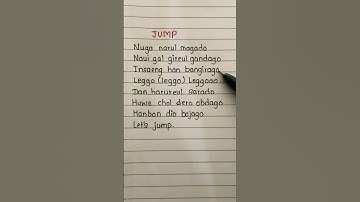 JUMP
Nuga narul magado
Naui gal gireul gandago
Insaeng han bangirago
Leggo (leggo) Leggooo.
Dan harureul sarado
Huwe chol dero obdago
Hanbon dio bojago
Let's jump.